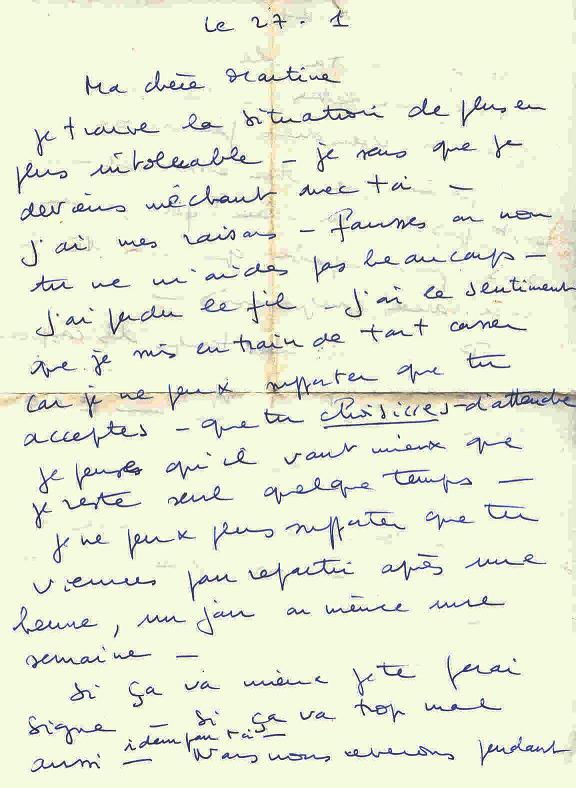 Le 27 - 1
Ma chère Martine
je trouve la situation de plus en
plus intolérable - je sens que je
deviens méchant avec toi -
j'ai mes raisons - Fausses ou non
tu ne m'aides pas beaucoup -
j'ai perdu le fil - j'ai le sentiment
que je suis en train de tout casser
car je ne peux supporter que tu
acceptes - que tu choisisses - d'attendre
je pense qu'il vaut mieux que
je reste seul quelque temps -
je ne peux plus supporter que tu
viennes pour repartir après une
heure, un jour ou même une
semaine -
Si ça va mieux je te ferai
signe - Si ça va trop mal
aussi - idem pour toi - Nous nous reverrons pendant